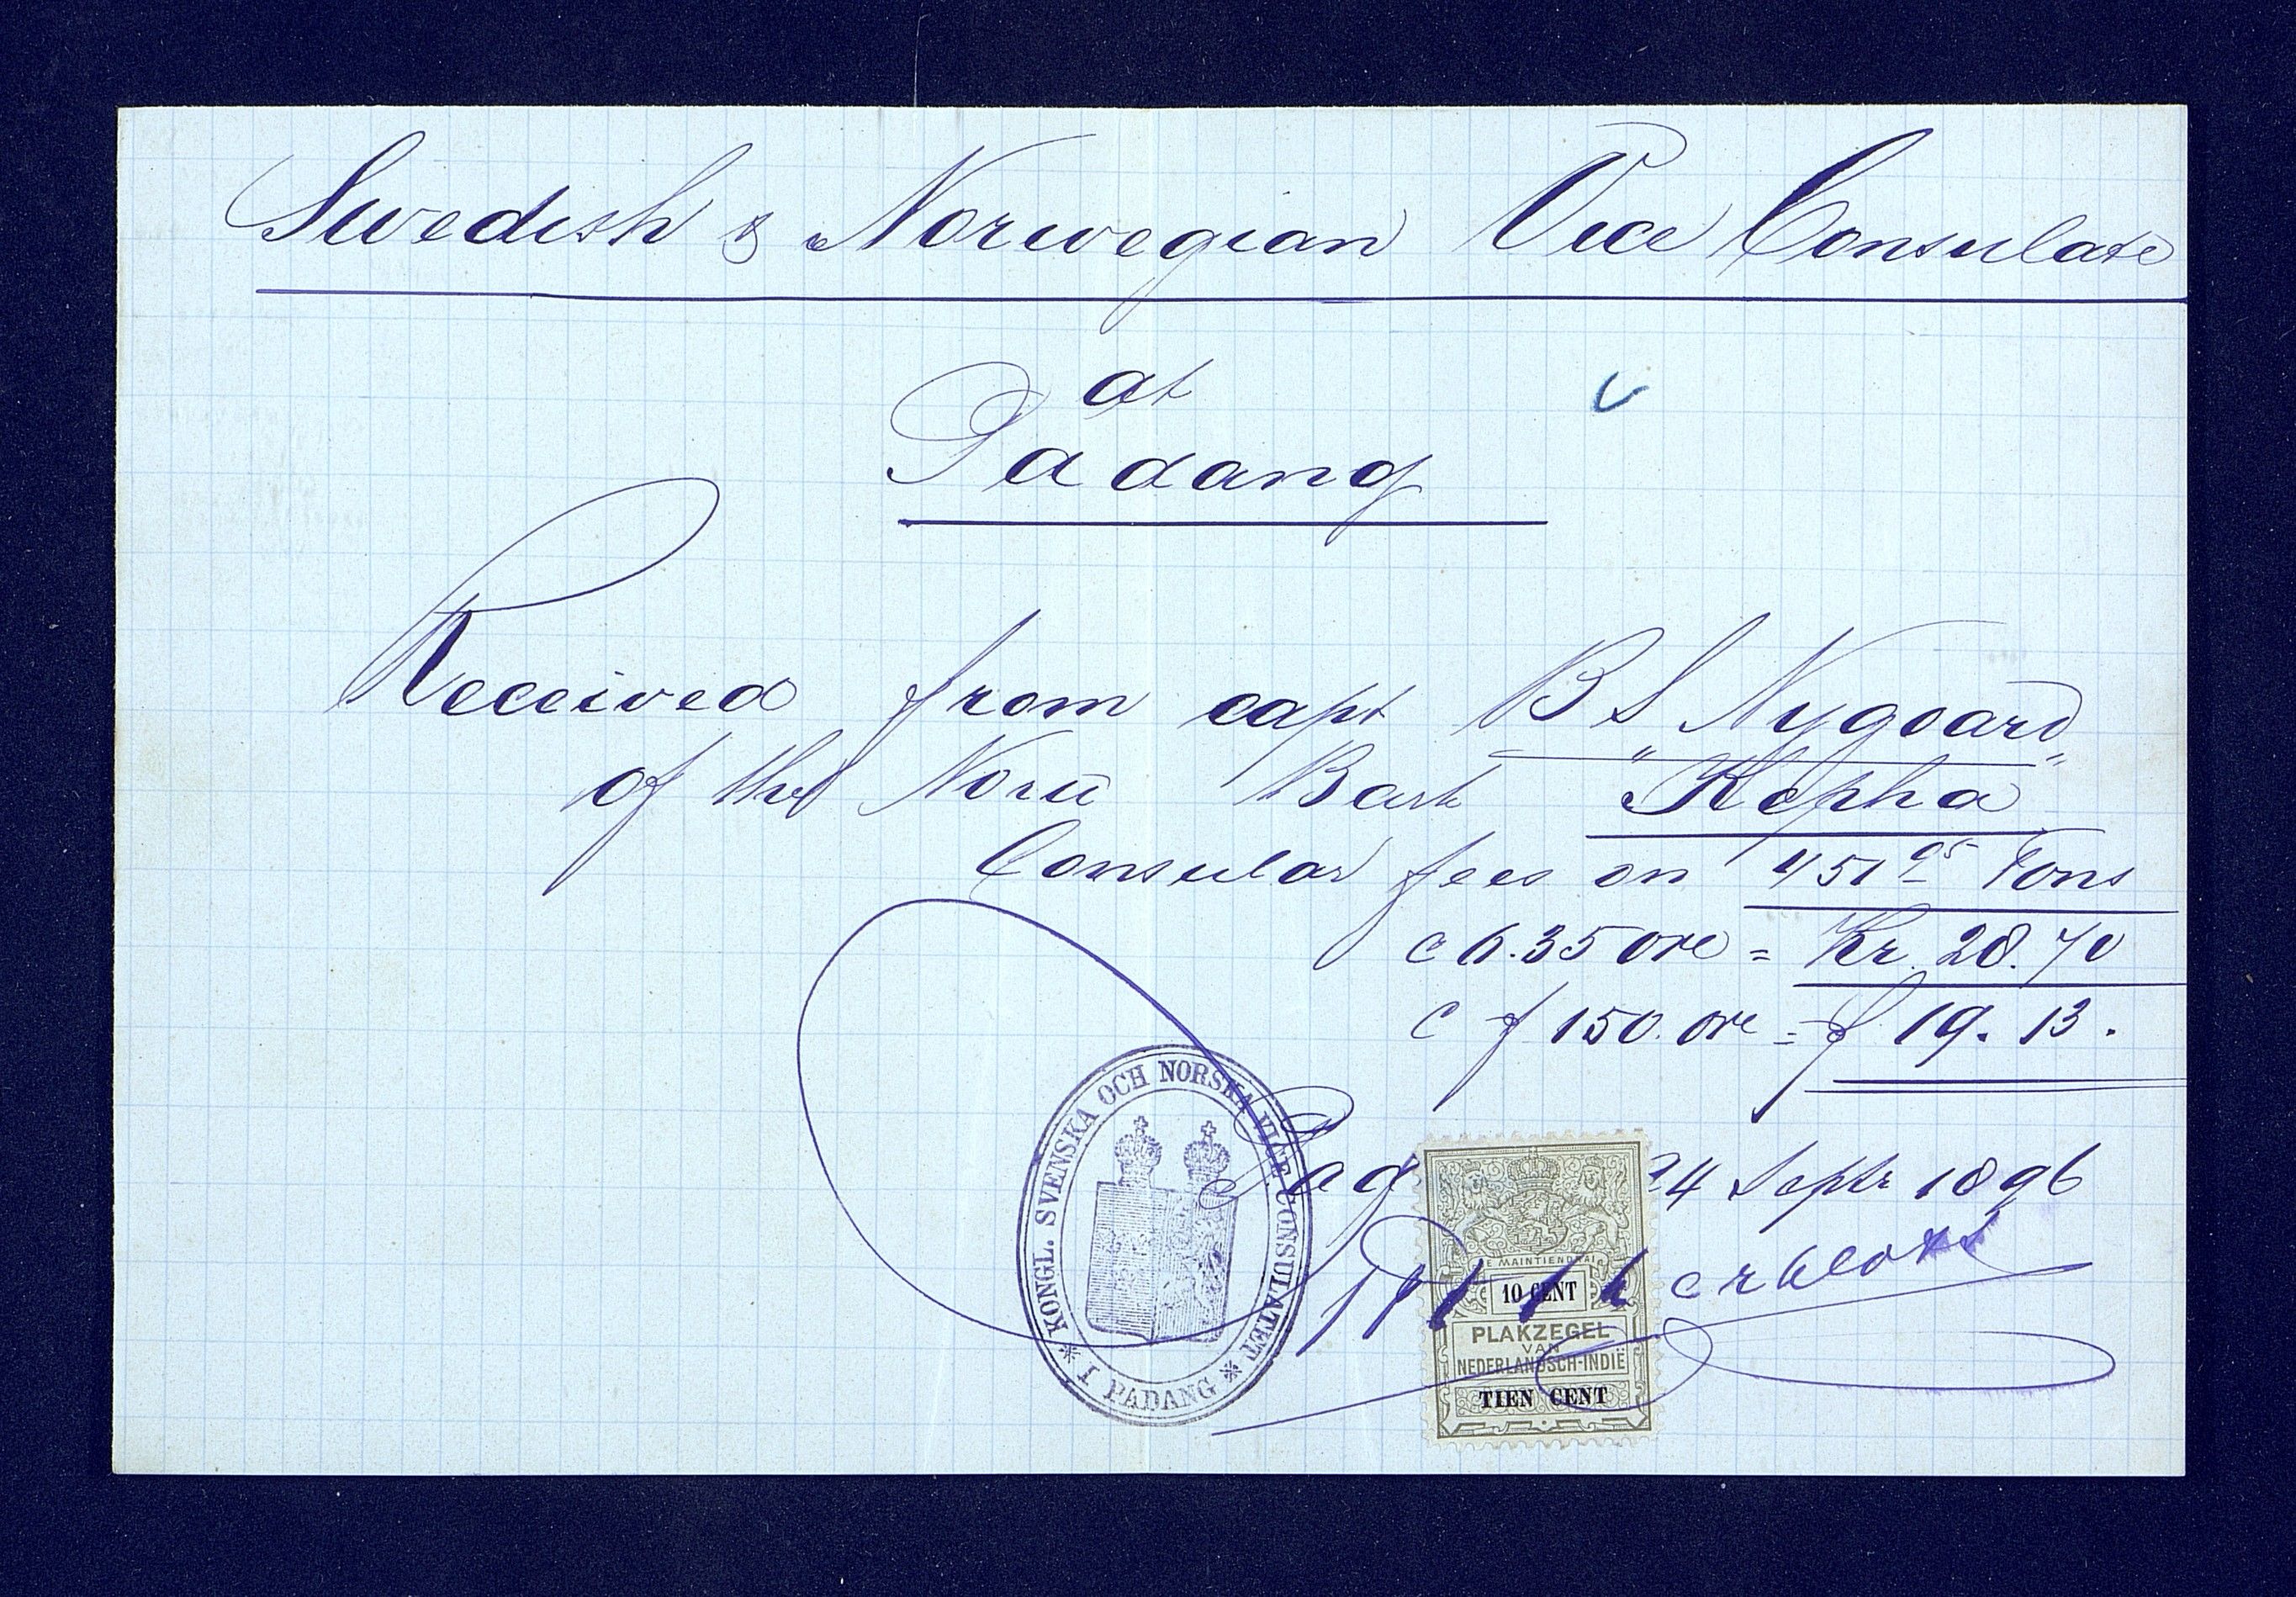 Swedish & Norwegian Vice Consulate
at
Padang
Received from capt B S Nygoard
of the Norw Bark "Kepha"
Consular fees on 451 95 Tons
c 6.35 ore = Kr. 28.70
c f 150. ore = f 19. 13.
Pag 24 Septr 1896
KONGL. SVENSKA OCH NORSKA VICE CONSULATET
I PADANG
JE MAINTIENDRAI
10 CENT
PLAKZEGEL
VAN
NEDERLANDSCH-INDIË
TIEN CENT